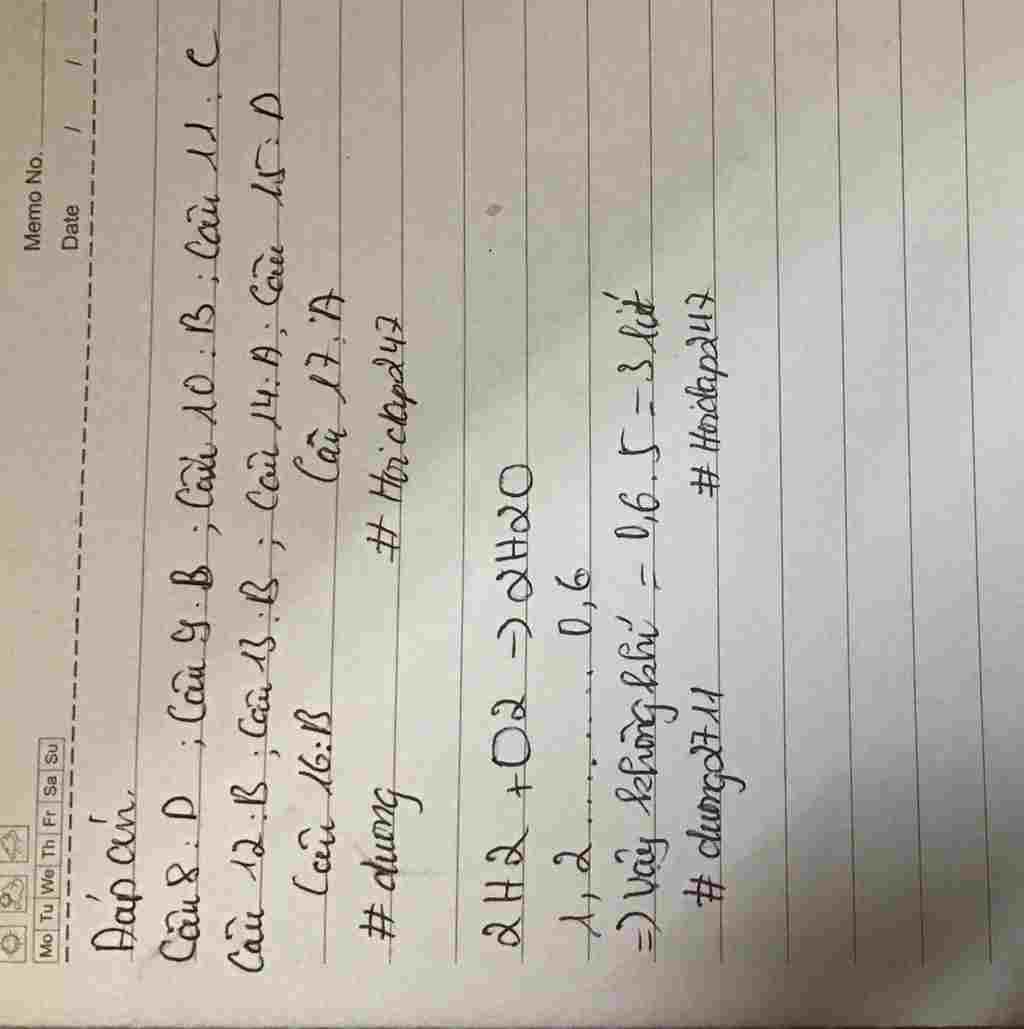 Memo No.
Mo Tu We Th Fr Sa Su
Date / /
Đáp án.
Câu 8 : D ; Câu 9 : B ; Câu 10 : B ; Câu 11 : C
Câu 12 : B ; Câu 13 : B ; Câu 14 : A ; Câu 15 : D
Câu 16 : B Câu 17 : A
# duong # Hoidap247
2H2 + O2 -> 2H2O
1,2 ........... 0,6
=> Vậy không khí = 0,6 . 5 = 3 lít
# duong2711 # Hoidap247